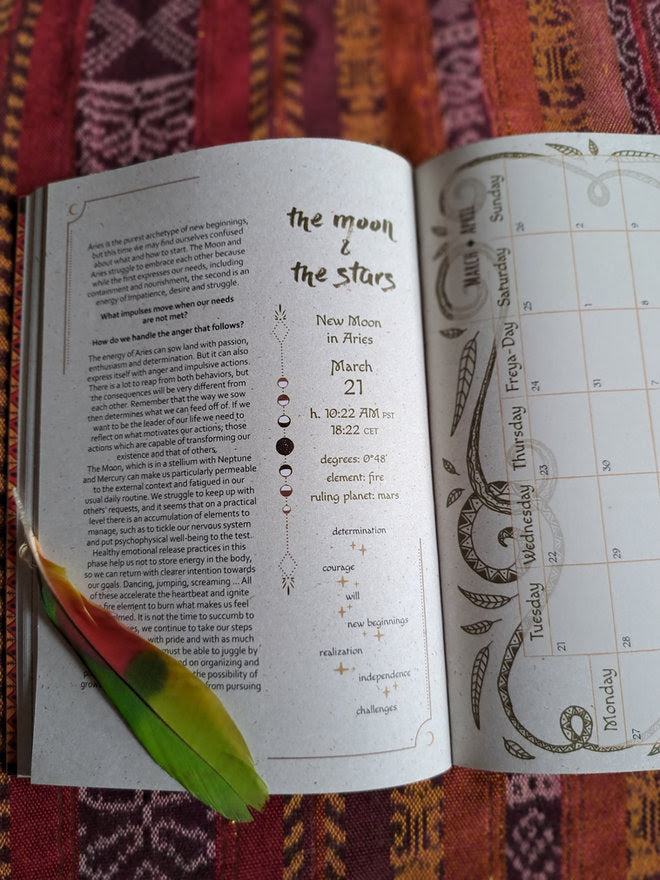 Aries is the purest archetype of new beginnings,
but this time we may find ourselves confused
about what and how to start. The Moon and
Aries struggle to embrace each other because
while the first expresses our needs, including
containment and nourishment, the second is an
energy of impatience, desire and struggle.
What impulses move when our needs
are not met?
How do we handle the anger that follows?
The energy of Aries can sow land with passion,
enthusiasm and determination. But it can also
express itself with anger and impulsive actions.
There is a lot to reap from both behaviors, but
the consequences will be very different from
each other. Remember that the way we sow
then determines what we can feed off of. If we
want to be the leader of our life we need to
reflect on what motivates our actions; those
actions which are capable of transforming our
existence and that of others.
The Moon, which is in a stellium with Neptune
and Mercury can make us particularly permeable
to the external context and fatigued in our
usual daily routine. We struggle to keep up with
others' requests, and it seems that on a practical
level there is an accumulation of elements to
manage, such as to tickle our nervous system
and put psychophysical well-being to the test.
Healthy emotional release practices in this
phase help us not to store energy in the body,
so we can return with clearer intention towards
our goals. Dancing, jumping, screaming ... All
of these accelerate the heartbeat and ignite
fire element to burn what makes us feel
It is not the time to succumb to
we continue to take our steps
with pride and with as much
must be able to juggle by
on organizing and
the possibility of
from pursuing
the moon
&
the stars
New Moon
in Aries
March
21
h. 10:22 AM PST
18:22 CET
degrees: 0°48'
element: fire
ruling planet: mars
determination
courage
will
new beginnings
realization
independence
challenges
MARCH • APRIL
Monday
27
Tuesday
21
28
Wednesday
22
29
Thursday
23
30
Freya-Day
24
31
7
Saturday
25
1
8
Sunday
26
2
9